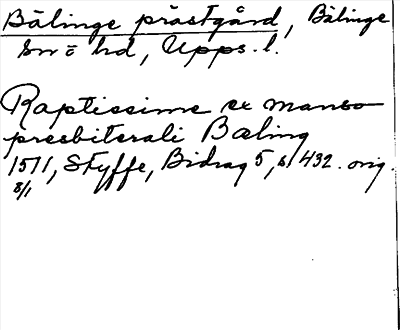 Bälinge prästgård, Bälinge
sn o hd, Upps. l.
Raptissime ex manso
presbiterali Bæling
1511, Styffe, Bidrag 5, s. 432. orig.
8/1